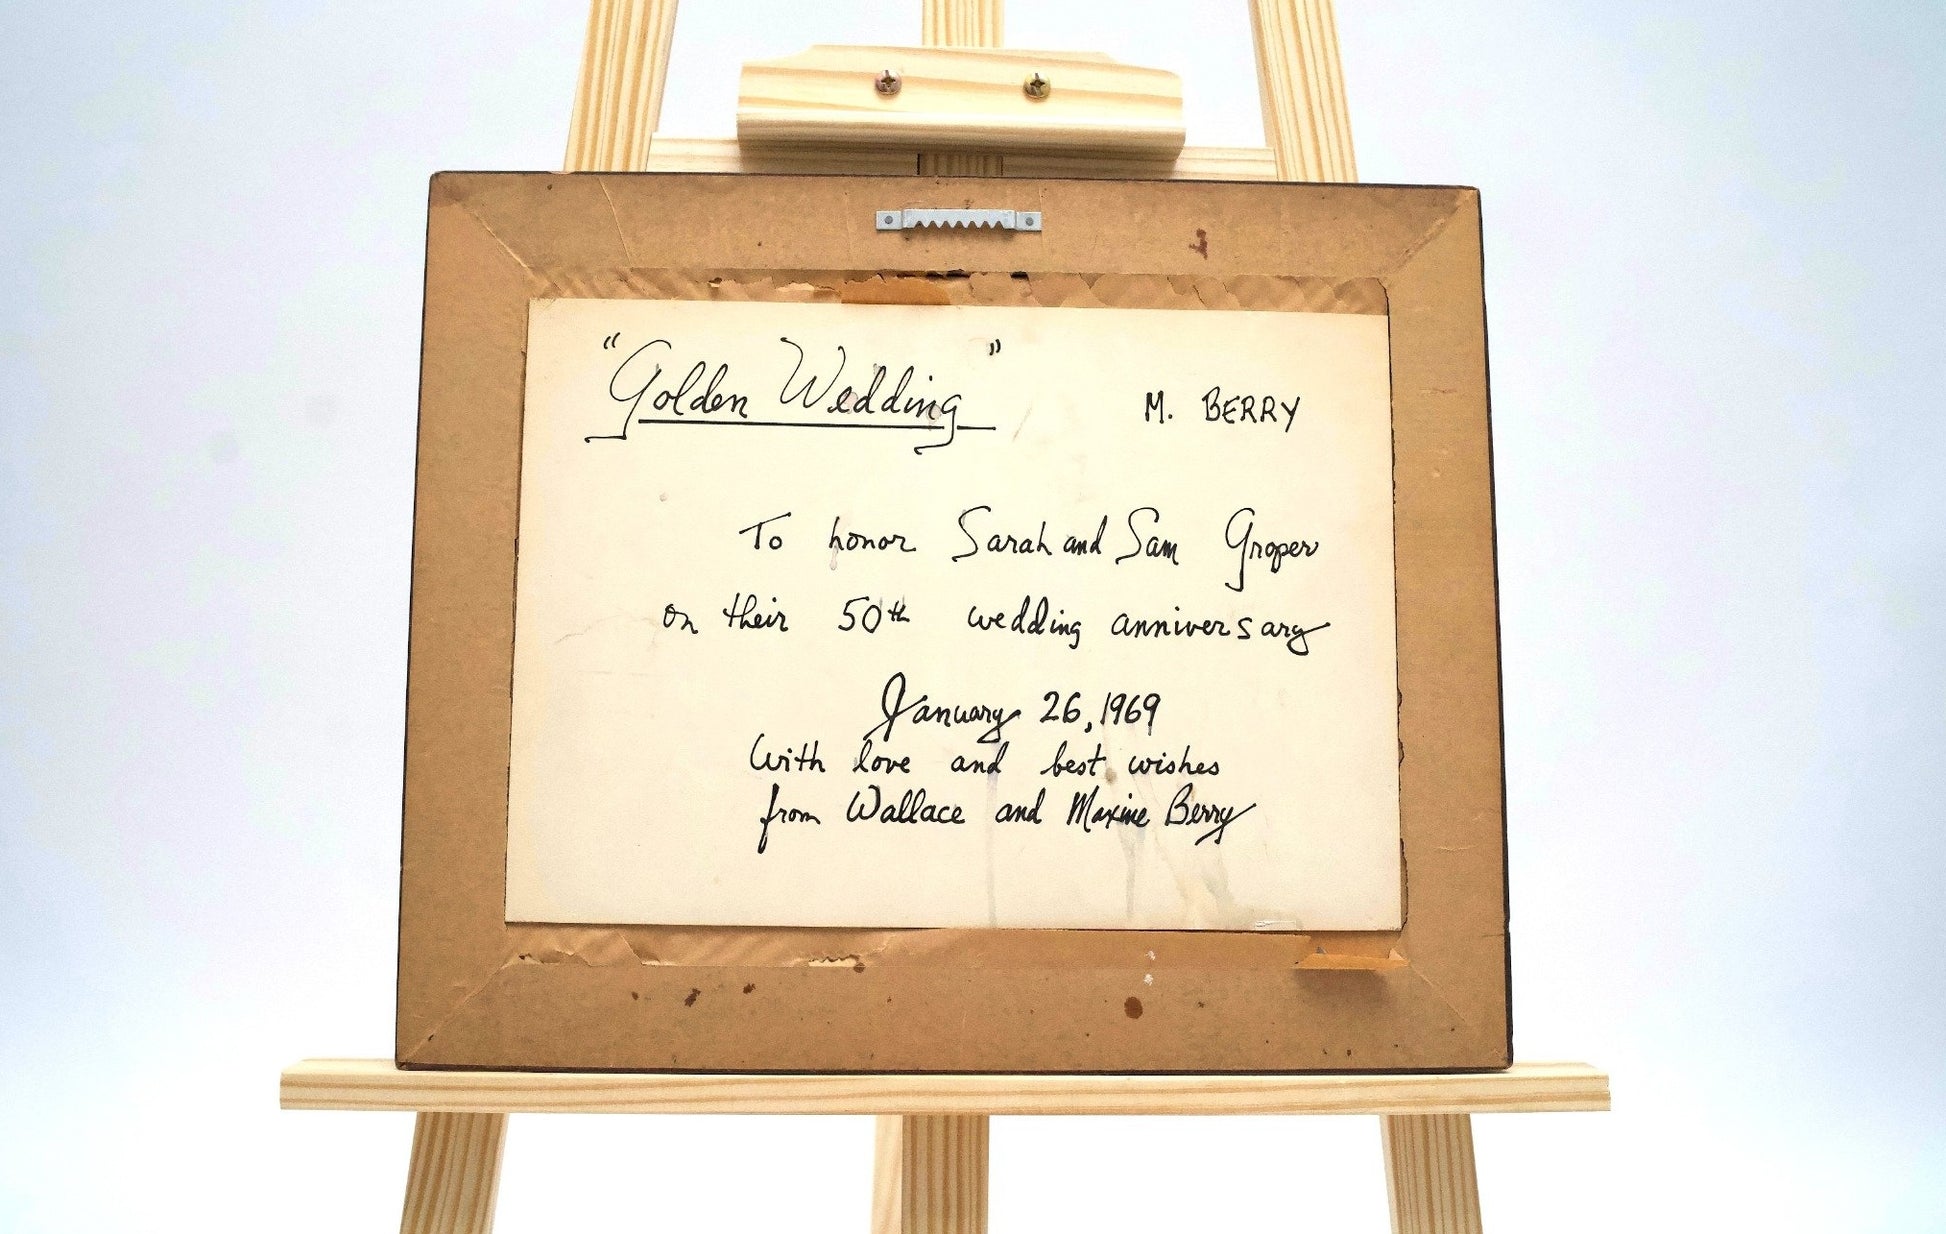 "Golden Wedding" M. BERRY
To honor Sarah and Sam Groper
on their 50th wedding anniversary
January 26, 1969
With love and best wishes
from Wallace and Maxine Berry